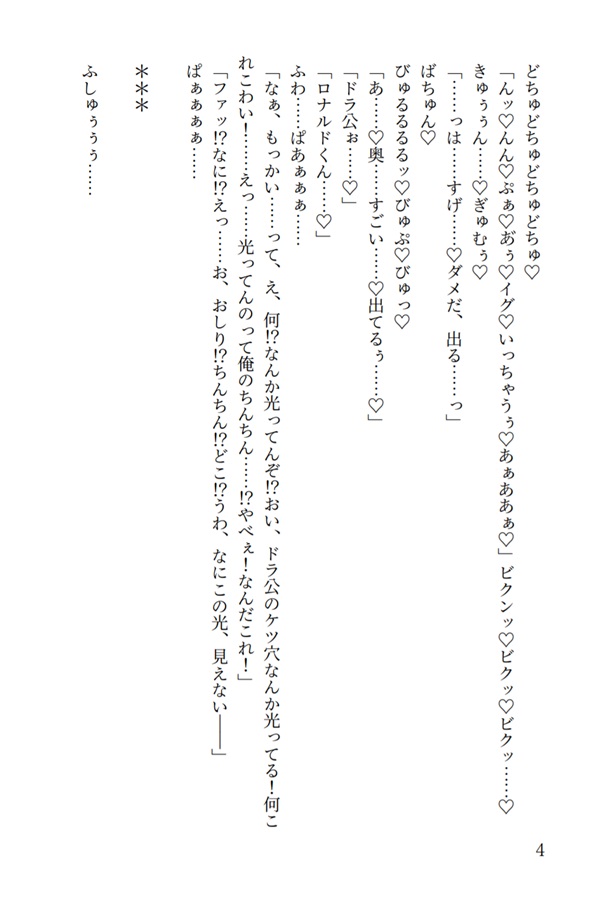 どちゅどちゅどちゅどちゅ♡
「んッ♡んん♡ぷぁ♡あ゙ぅ♡イグ♡いっちゃうぅ♡あぁああぁ♡」ビクンッ♡ビクッ♡ビクッ……♡
きゅぅぅん……♡ぎゅむぅ♡
「……っは……すげ……♡ダメだ、出る……っ」
ばちゅん♡
びゅるるるるッ♡びゅぷ♡びゅっ♡
「あ……♡奥……すごい……♡出てるぅ……♡」
「ドラ公ぉ……♡」
「ロナルドくん……♡」
ふわ……ぱあぁぁぁ……
「なぁ、もっかい……って、え、何!?なんか光ってんぞ!?おい、ドラ公のケツ穴なんか光ってる！何こ
れこわい！……えっ……光ってんのって俺のちんちん……!?やべぇ！なんだこれ！」
「ファッ!?なに!?えっ……お、おしり!?ちんちん!?どこ!?うわ、なにこの光、見えない――」
ぱぁぁぁぁ……
＊＊＊
ふしゅぅぅぅ……
4